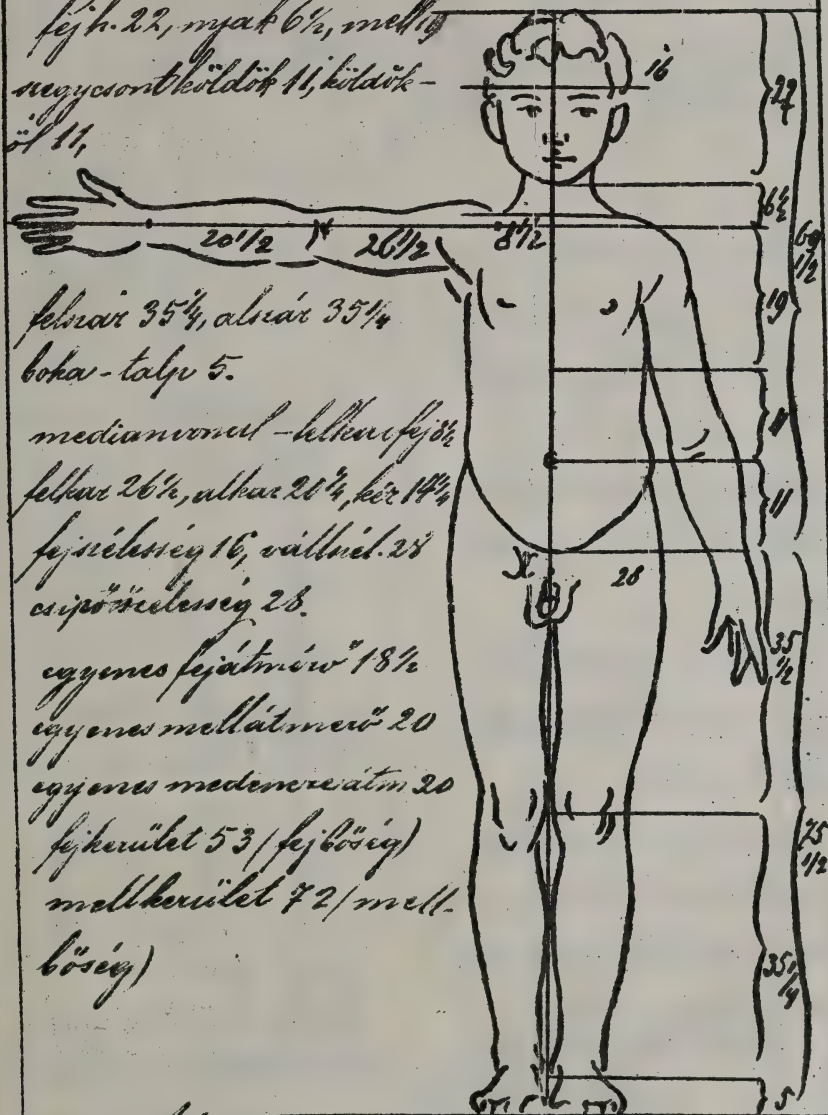 fejh. 22, nyak 6½, mellig
szegycsont köldök 11, köldök-
öl 11,
16
22
6½
20 1/2
26 1/2
8 1/2
69 1/2
19
felszár 35 1/4, alszár 35 1/4
boka-talp 5.
11
medianvonal - felkarfej 8½
felkar 26½, alkar 20¾, kéz 14¾
11
fejszélesség 16, vállszél. 28
csipőszélesség 28.
28
egyenes fejátmérő 18½
35 1/2
egyenes mellátmerő 20
egyenes medenceátm 20
fejkerület 53 (fejbőség)
75 1/2
mellkerület 72 (mell-
bőség)
35 1/4
5